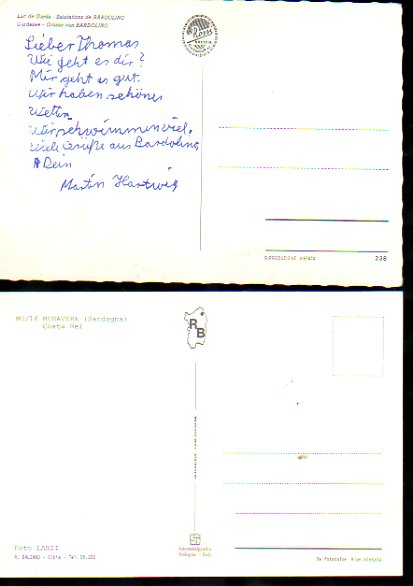 Lac de Garde - Salutations de BARDOLINO
Gardasee - Grüsse von BARDOLINO
Lieber Thomas
Wie geht es dir?
Mir geht es gut.
Wir haben schönes
Wetter
Wir schwimmen viel.
Viele Grüße aus Bardolino
Dein
Martin Hartwig
RIPRODUZIONE VIETATA
238
MU/16 MURAVERA (Sardegna)
Costa Rei
RB
Foto LANZI
R. BALZANO - Olbia - Tel.